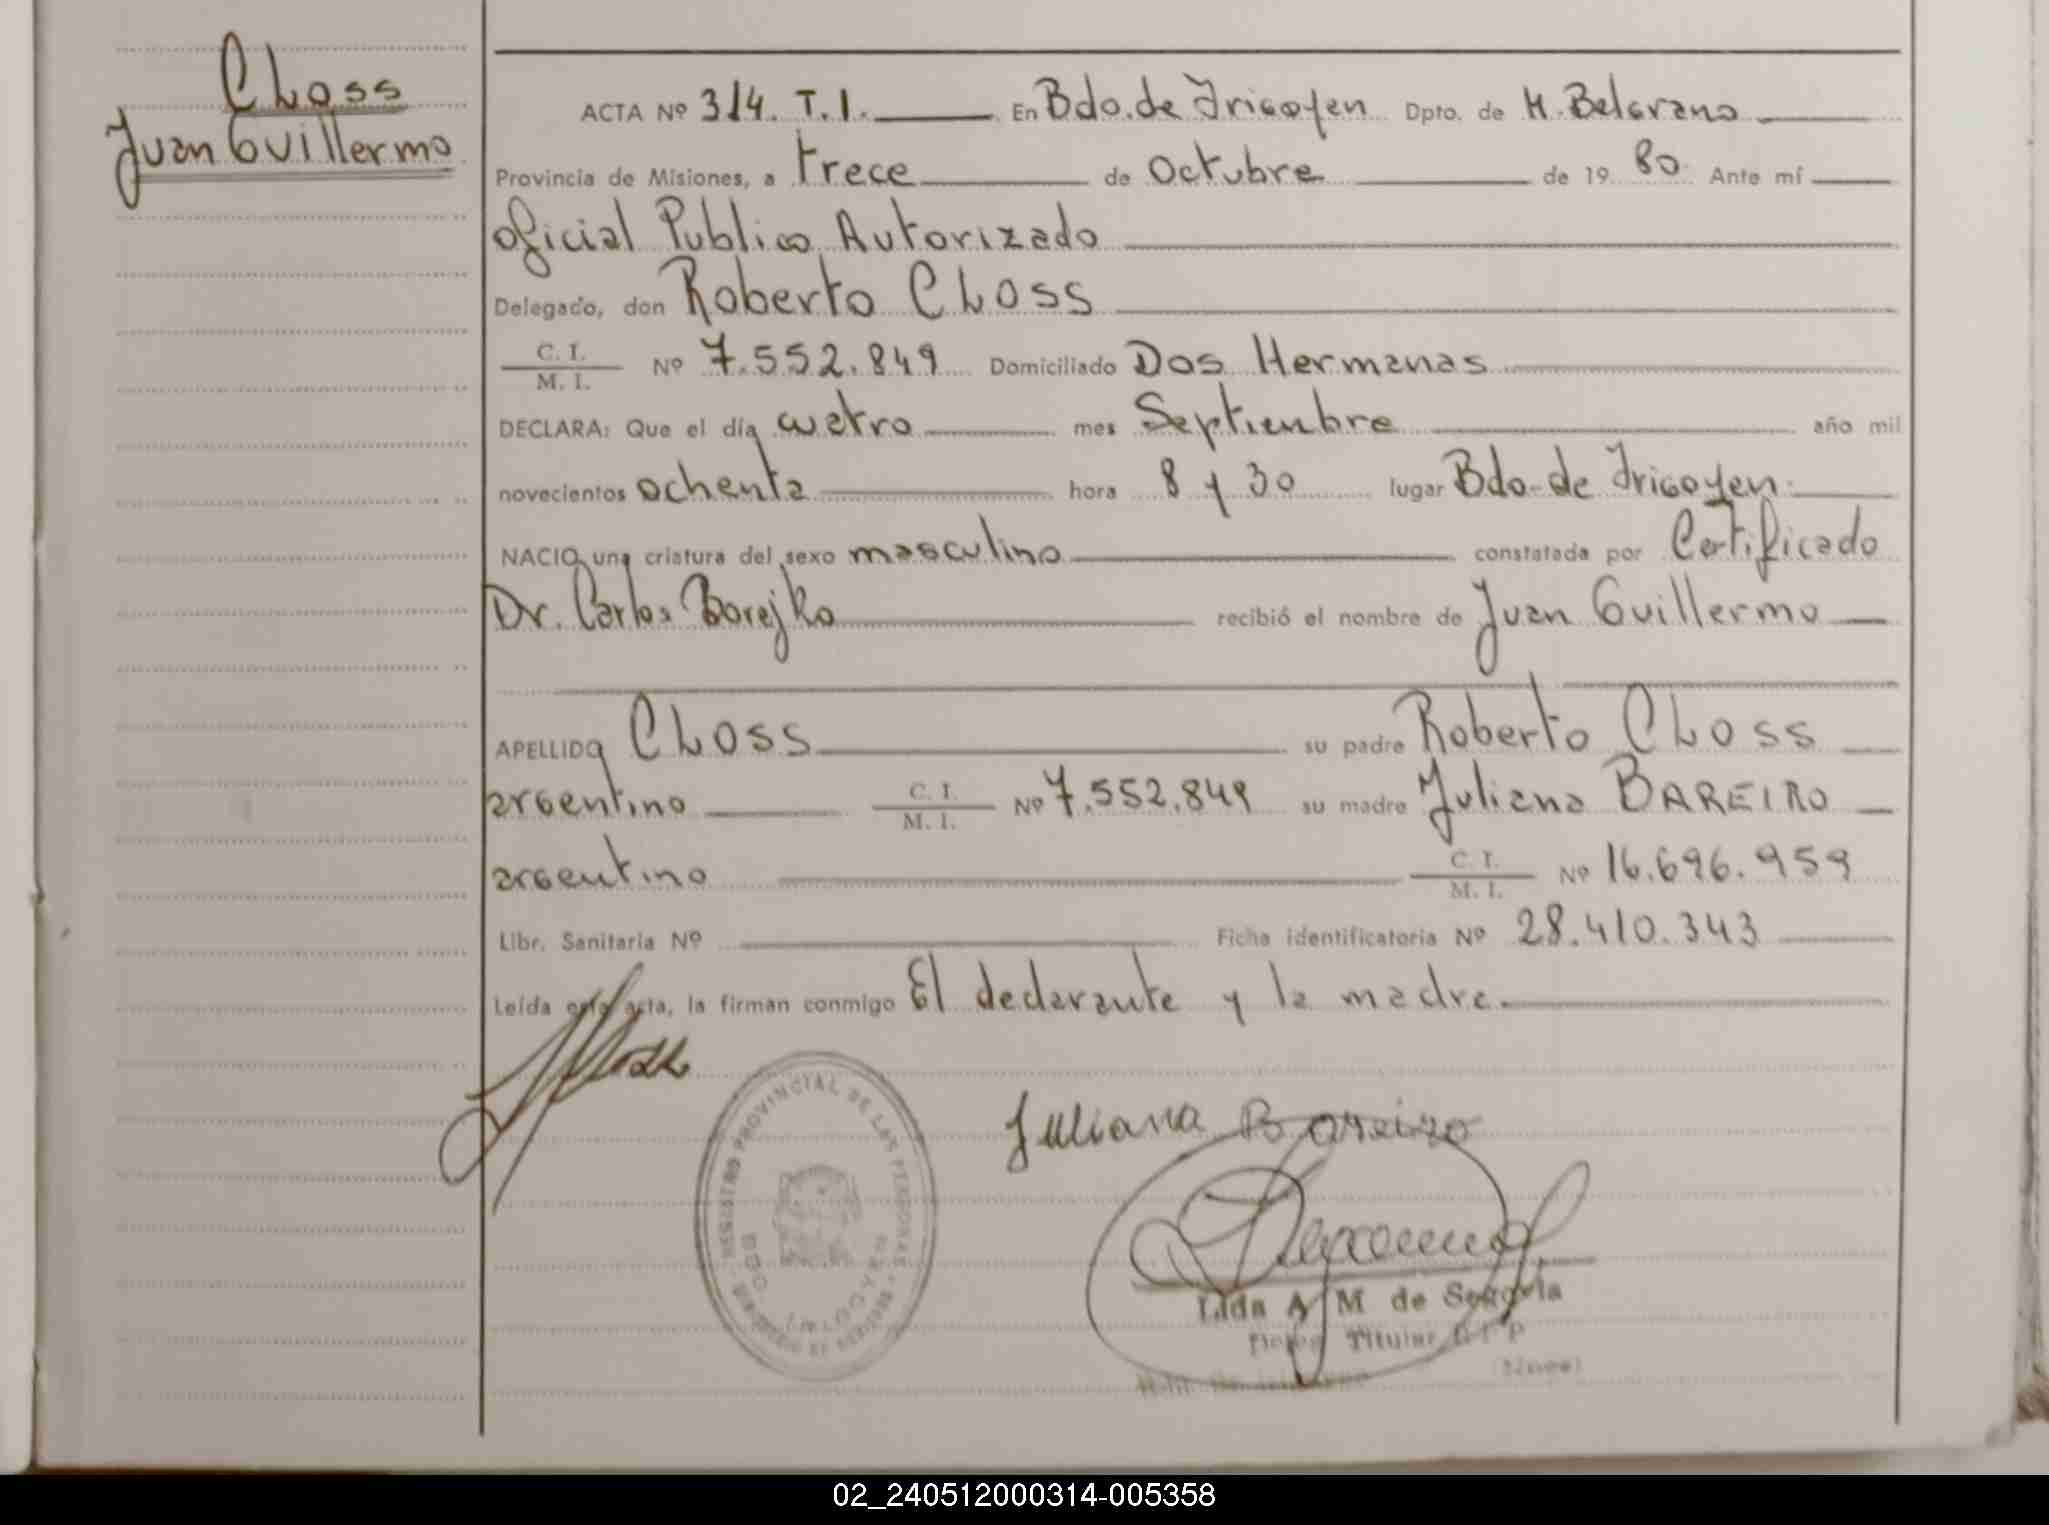 Closs
Juan Guillermo
ACTA Nº 314. T.I. En Bdo. de Irigoyen Dpto. de M. Belgrano
Provincia de Misiones, a trece de Octubre de 19 80 Ante mí
oficial Publico Autorizado
Delegado, don Roberto Closs
C. I. / M. I. Nº 7.552.849 Domiciliado Dos Hermanas
DECLARA: Que el día cuatro mes Septiembre año mil
novecientos ochenta hora 8 y 30 lugar Bdo. de Irigoyen.
NACIO una criatura del sexo masculino constatada por Certificado
Dr. Carlos Borejko recibió el nombre de Juan Guillermo
APELLIDO Closs su padre Roberto Closs
argentino C. I. / M. I. Nº 7.552.849 su madre Juliana BAREIRO
argentino C. I. / M. I. Nº 16.696.959
Libr. Sanitaria Nº Ficha identificatoria Nº 28.410.343
Leída esta acta, la firman conmigo El declarante y la madre.
REGISTRO PROVINCIAL DE LAS PERSONAS
BDO. IRIGOYEN
Juliana Bareiro
Lida A M de
Titular
02_240512000314-005358